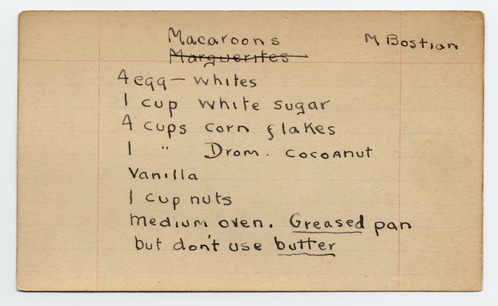 Macaroons M Bostian
Marguerites
4 egg-whites
1 cup white sugar
4 cups corn flakes
1 " Drom. cocoanut
Vanilla
1 cup nuts
medium oven. Greased pan
but don't use butter